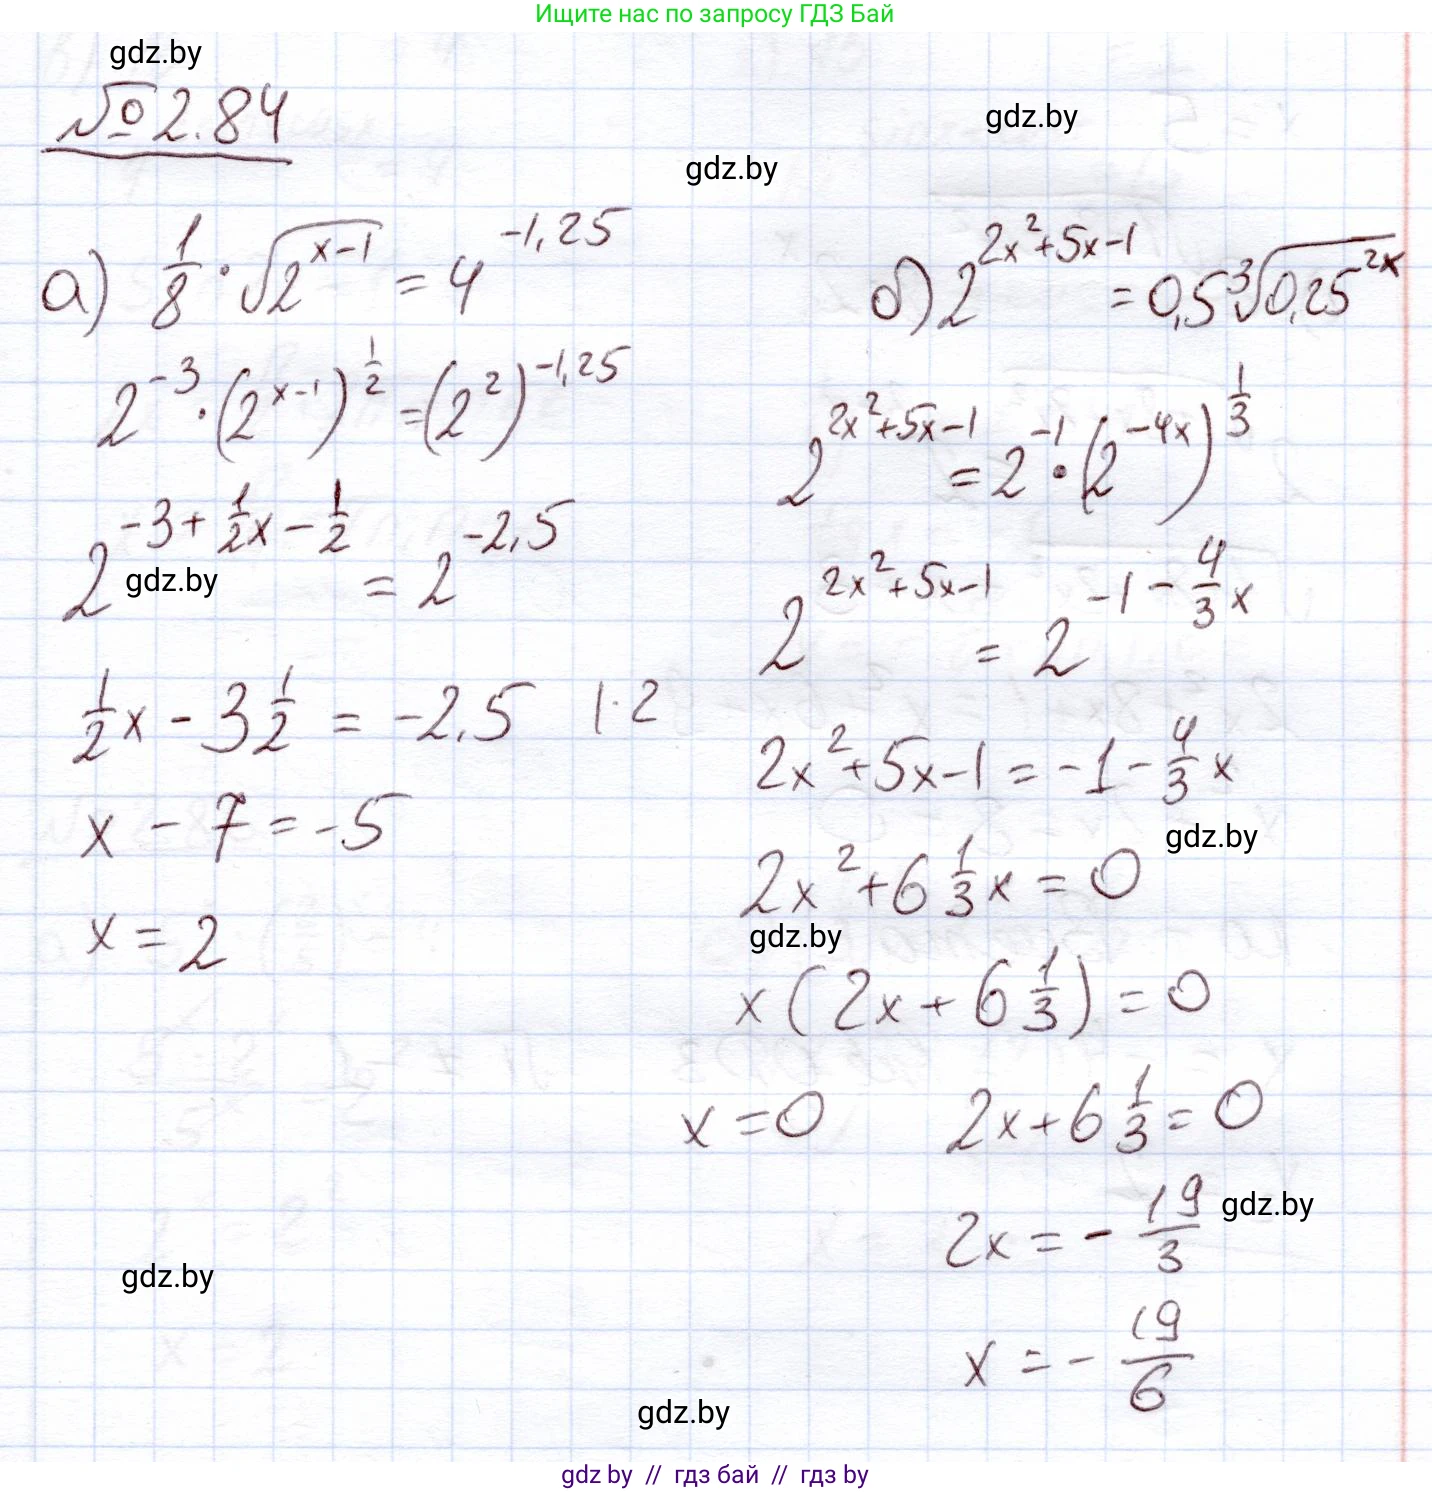 Ищите нас по запросу ГДЗ Бай
gdz.by
№ 2.84
gdz.by
gdz.by
а) 1/8 · √(2^(x-1)) = 4^(-1,25)
2^(-3) · (2^(x-1))^(1/2) = (2^2)^(-1,25)
2^(-3 + 1/2x - 1/2) = 2^(-2,5)
gdz.by
1/2x - 3 1/2 = -2,5 | · 2
x - 7 = -5
x = 2
б) 2^(2x²+5x-1) = 0,5 ∛(0,25^(2x))
2^(2x²+5x-1) = 2^(-1) · (2^(-4x))^(1/3)
2^(2x²+5x-1) = 2^(-1 - 4/3x)
2x² + 5x - 1 = -1 - 4/3x
gdz.by
2x² + 6 1/3x = 0
gdz.by
x(2x + 6 1/3) = 0
x = 0 2x + 6 1/3 = 0
2x = - 19/3
gdz.by
x = - 19/6
gdz.by
gdz.by
gdz by // гдз бай // гдз by